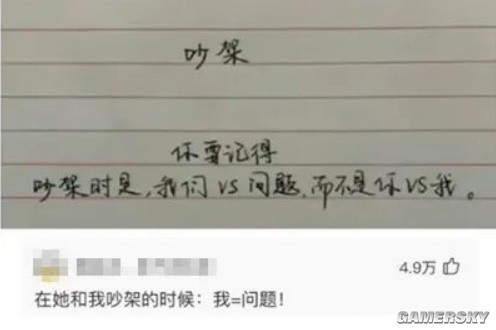 吵架
你要记得
吵架时是,我们VS问题,而不是你VS我。
4.9万
在她和我吵架的时候：我=问题！
GAMERSKY